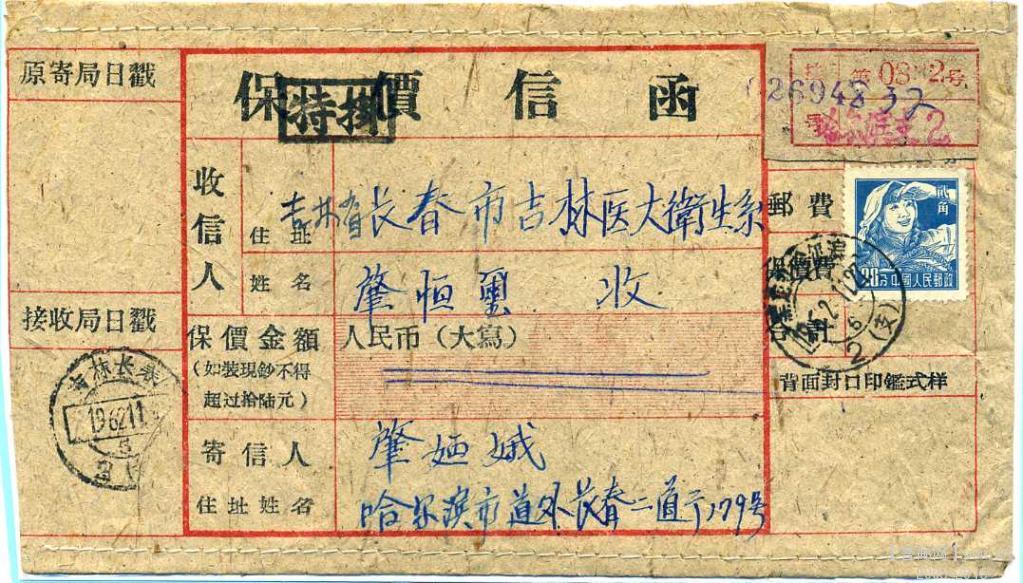 原寄局日戳
保價信函
特掛
第03 2号
026948 32
收信人
住址
吉林省长春市吉林医大衛生系
姓名
肇恒璽 收
郵費
保價費
貳角
20分中國人民郵政
接收局日戳
吉林长春
1962.11
保價金額
(如裝現鈔不得
超过拾陆元)
人民币(大寫)
背面封口印鑑式样
寄信人
住址姓名
肇娅娥
哈尔滨市道外长春二道亍179号